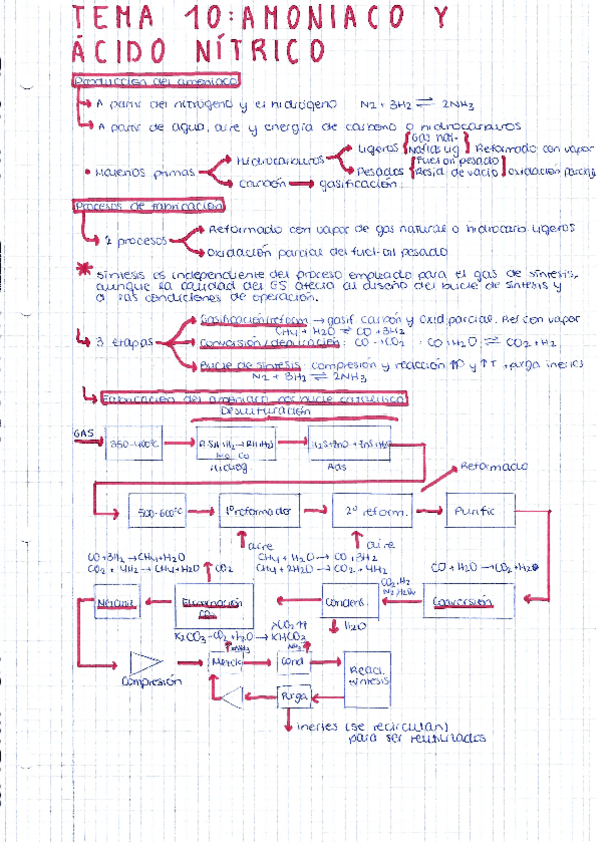 TEMA 10: AMONIACO Y
ÁCIDO NÍTRICO
Producción del amoniaco
A partir del nitrógeno y el hidrógeno N2 + 3H2 ⇌ 2NH3
A partir de agua, aire y energía de carbono o hidrocarburos
• Materias primas
Hidrocarburos
Ligeros
Gas nat.
Naftas lig
Reformado con vapor
Pesados
Fuel oil pesado
Resid. de vacío
oxidación parcial
Carbón → gasificación
Procesos de fabricación
2 procesos
Reformado con vapor de gas natural o hidrocarb. ligeros
Oxidación parcial del fuel-oil pesado
* síntesis es independiente del proceso empleado para el gas de síntesis,
aunque la calidad del GS afecta al diseño del bucle de síntesis y
a las condiciones de operación.
3 etapas
Gasificación/reform → gasif. carbón y oxid. parcial. Ref con vapor
CH4 + H2O ⇌ CO + 3H2
Conversión/depuración: CO → CO2 CO + H2O ⇌ CO2 + H2
Bucle de síntesis: compresión y reacción ↑P y ↑T + purga inertes
N2 + 3H2 ⇌ 2NH3
Fabricación del amoniaco por bucle
Desulfuración
GAS
350-400ºC
Hidrog.
Ads
Reformado
500-600ºC
1º reformador
2º reform.
Purific
aire
aire
CO + 3H2 → CH4 + H2O
CO2 + 4H2 → CH4 + H2O
CO2
CH4 + H2O → CO + 3H2
CH4 + 2H2O → CO2 + 4H2
CO + H2O → CO2 + H2
CO2, H2
N2, H2O
Metaniz.
Eliminación
CO2
Condens.
Conversión
H2O
K2CO3 + CO2 + H2O → KHCO3
Compresión
Mezcla
Cond
NH3
React.
síntesis
Purga
inertes (se recirculan)
para ser reutilizados